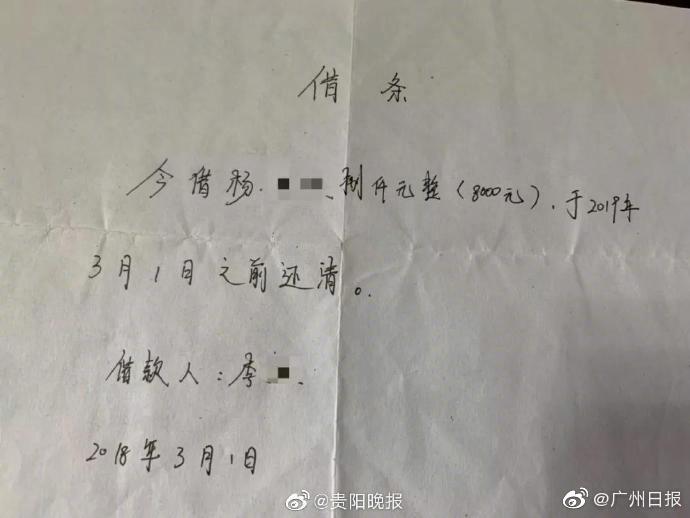 借条
今借杨 捌仟元整（8000元），于2019年
3月1日之前还清。
借款人：李
2018年3月1日
@贵阳晚报
@广州日报